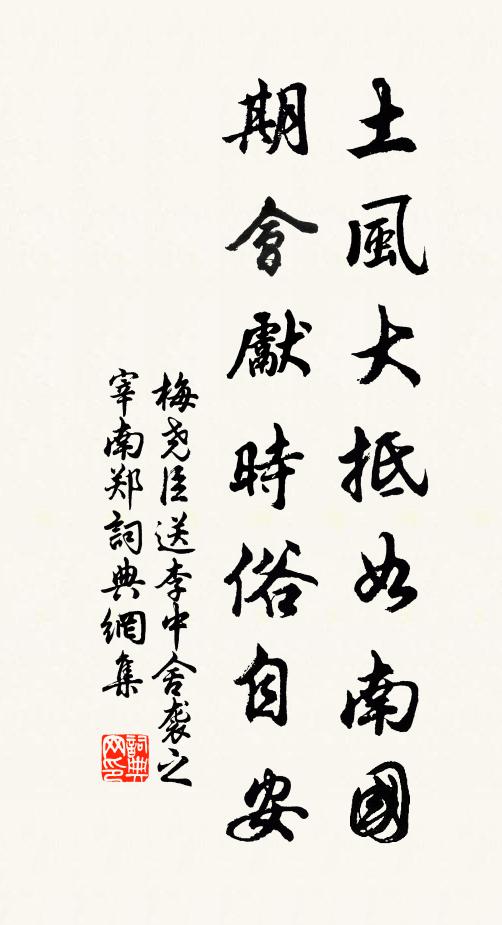 土風大抵如南國
期會獻時俗自安
梅尧臣送李中舍袭之
宰南郑詞典網集
詞典网印